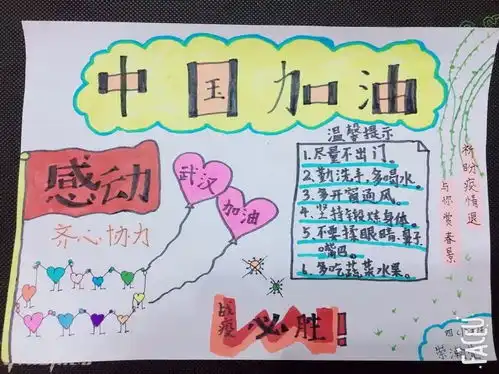 中国加油
温馨提示
1.尽量不出门。
2.勤洗手,多喝水。
3.多开窗通风。
4.坚持锻炼身体。
5.不要揉眼睛.鼻子
嘴巴。
6.多吃蔬菜水果。
感动
齐心协力
武汉
加油
战疫
必胜!
祈盼疫情退
与你赏春景
FACU